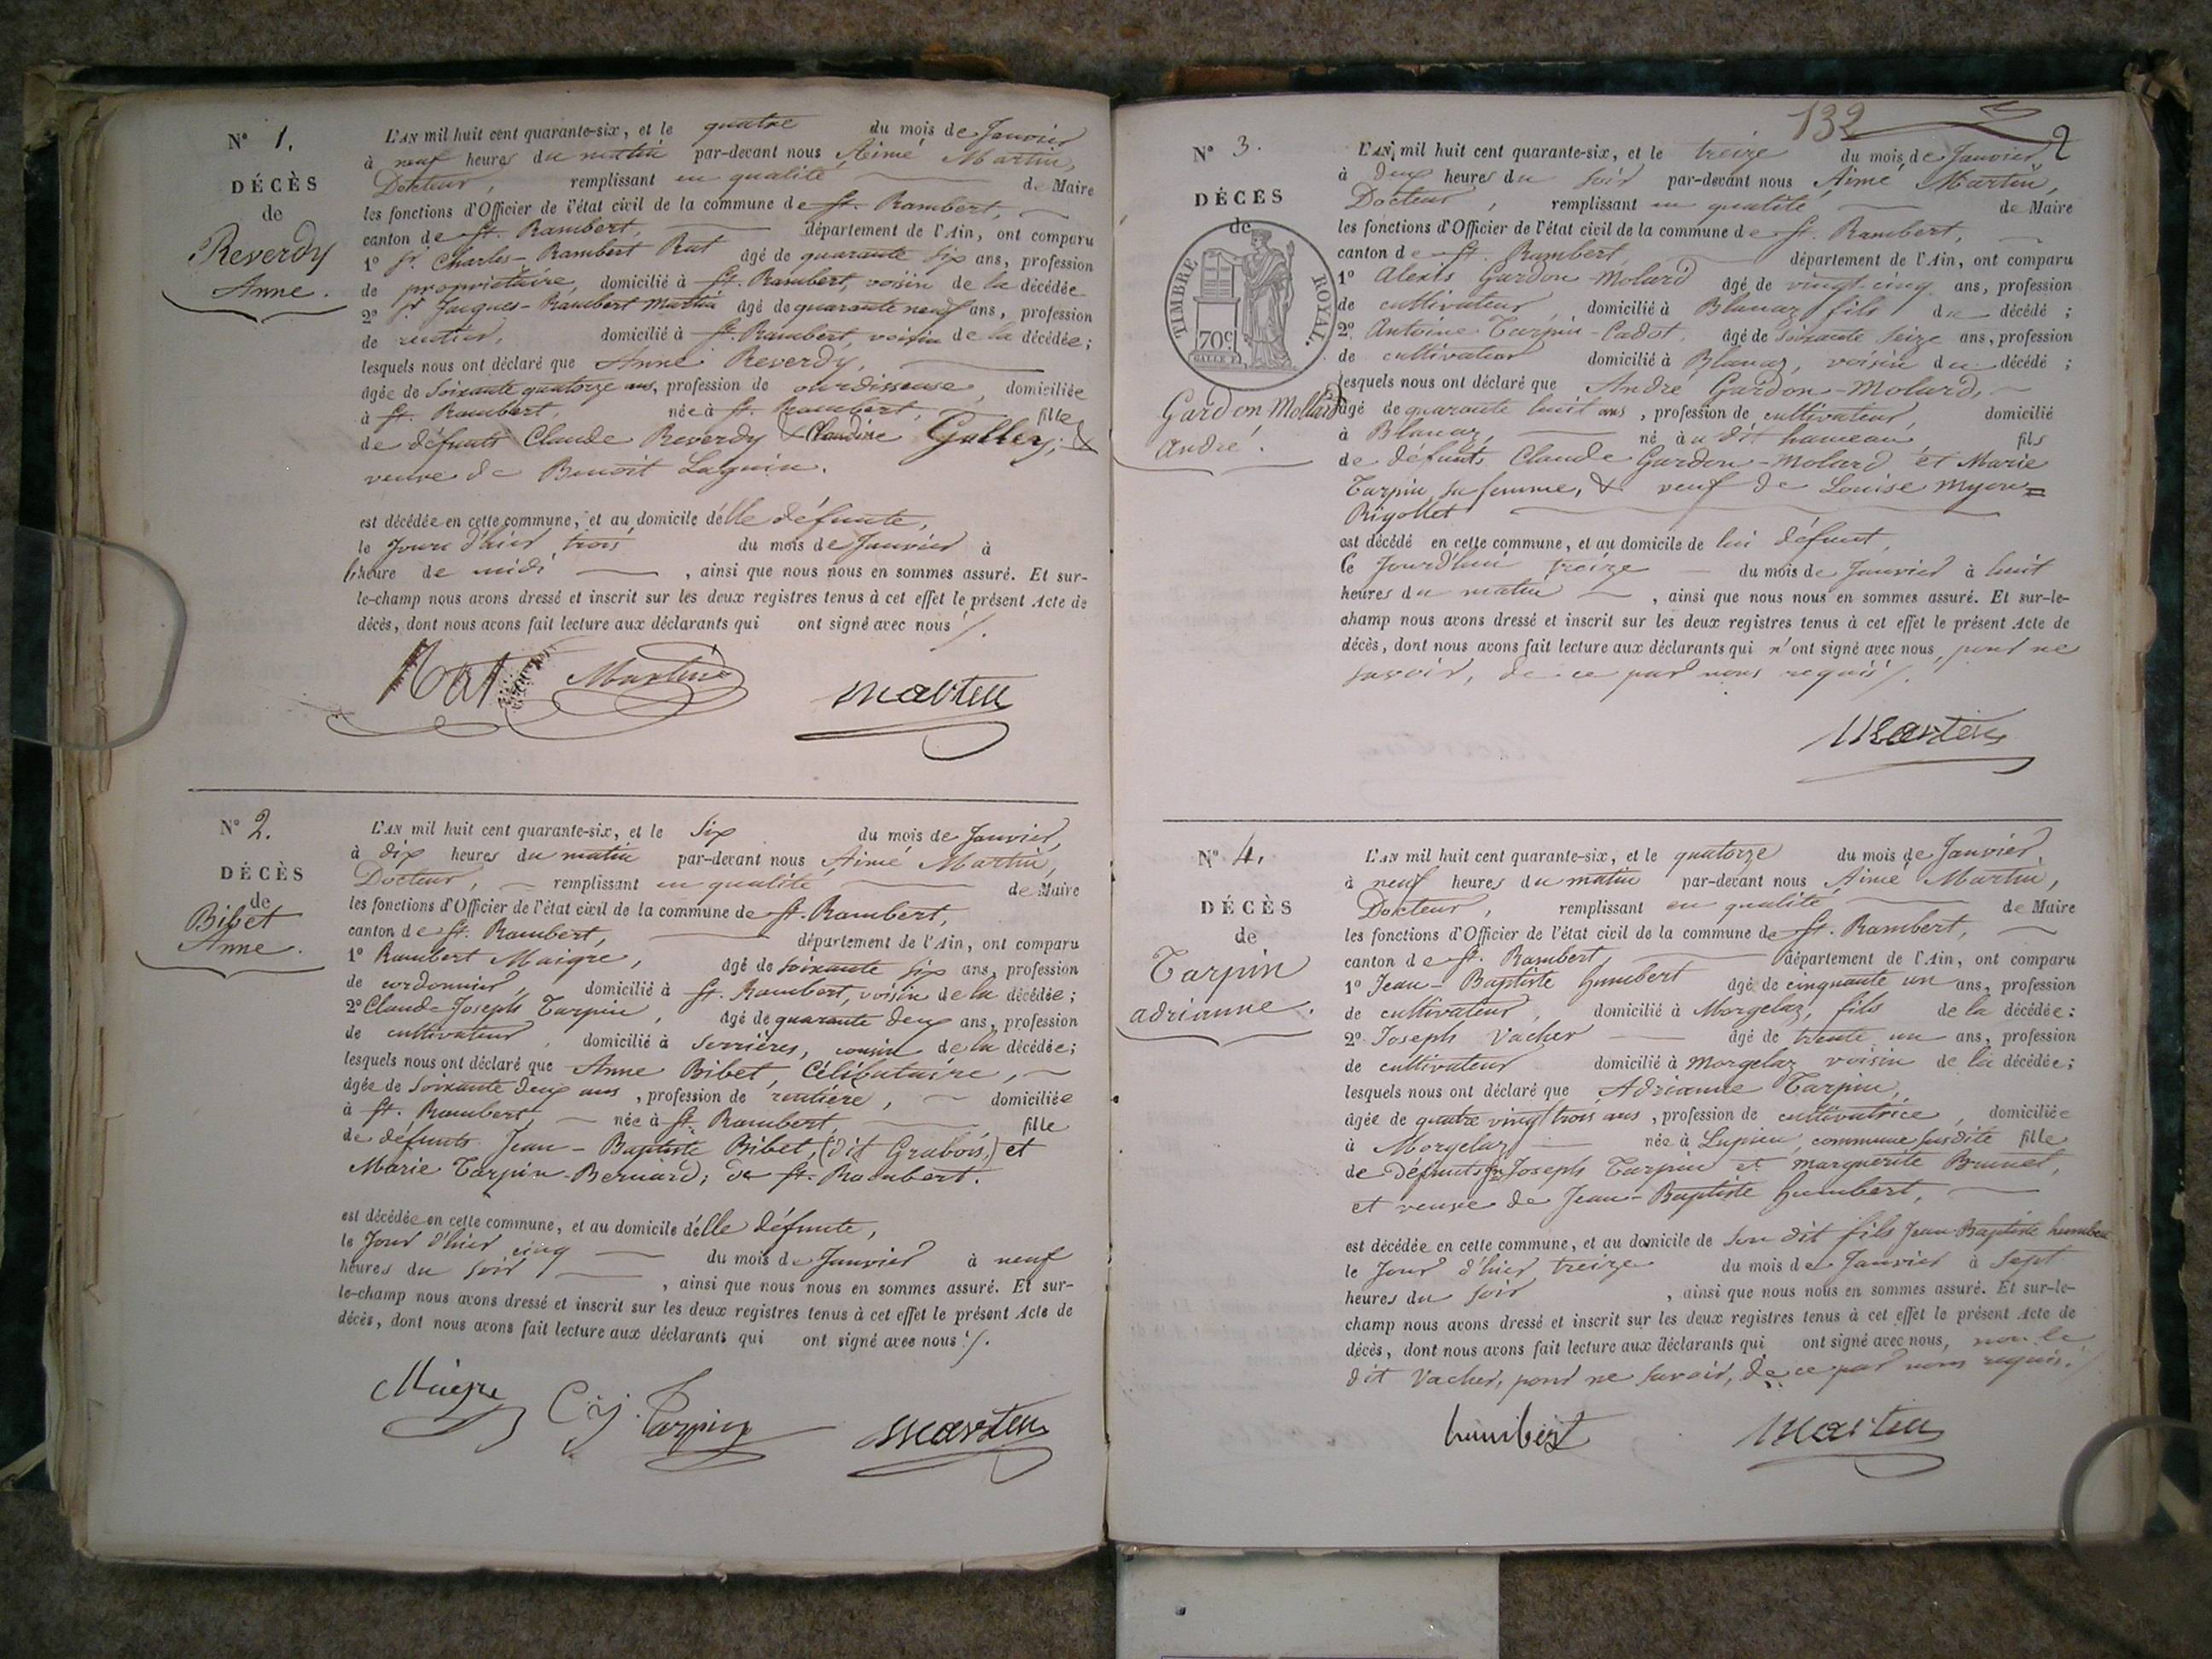 N° 1.
DÉCÈS
de
Reverdy
Anne.
L'AN mil huit cent quarante-six, et le quatre du mois de Janvier
à neuf heures du matin par-devant nous Aimé Martin,
Docteur, remplissant en qualité de Maire
les fonctions d'Officier de l'état civil de la commune de St. Rambert,
canton de St. Rambert, département de l'Ain, ont comparu
1° Sr. Charles-Rambert Rat âgé de quarante six ans, profession
de propriétaire, domicilié à St. Rambert, voisin de la décédée
2° Sr. Jacques-Rambert Martin âgé de quarante neuf ans, profession
de rentier, domicilié à St. Rambert, voisin de la décédée;
lesquels nous ont déclaré que Anne Reverdy,
âgée de soixante quatorze ans, profession de ourdisseuse, domiciliée
à St. Rambert, née à St. Rambert, fille
de défunts Claude Reverdy & Claudine Galley; &
veuve de Benoit Laguin.
est décédée en cette commune, et au domicile d'elle défunte,
le jour d'hier trois du mois de Janvier à
l'heure de midi, ainsi que nous nous en sommes assuré. Et sur-
le-champ nous avons dressé et inscrit sur les deux registres tenus à cet effet le présent Acte de
décès, dont nous avons fait lecture aux déclarants qui ont signé avec nous /.
Rat Martin Martin
N° 2.
DÉCÈS
de
Bibet
Anne.
L'AN mil huit cent quarante-six, et le six du mois de Janvier,
à dix heures du matin par-devant nous Aimé Martin,
Docteur, remplissant en qualité de Maire
les fonctions d'Officier de l'état civil de la commune de St. Rambert,
canton de St. Rambert, département de l'Ain, ont comparu
1° Rambert Maigre, âgé de soixante six ans, profession
de cordonnier, domicilié à St. Rambert, voisin de la décédée;
2° Claude-Joseph Tarpin, âgé de quarante deux ans, profession
de cultivateur, domicilié à Serrières, cousin de la décédée;
lesquels nous ont déclaré que Anne Bibet, Célibataire,
âgée de soixante deux ans, profession de rentière, domiciliée
à St. Rambert, née à St. Rambert, fille
de défunts Jean-Baptiste Bibet, (dit Grabois,) et
Marie Tarpin-Bernard; de St. Rambert.
est décédée en cette commune, et au domicile d'elle défunte,
le Jour d'hier cinq du mois de Janvier à neuf
heures du soir, ainsi que nous nous en sommes assuré. Et sur-
le-champ nous avons dressé et inscrit sur les deux registres tenus à cet effet le présent Acte de
décès, dont nous avons fait lecture aux déclarants qui ont signé avec nous /.
Maigre C. j. Tarpin Martin
132
2
N° 3.
DÉCÈS
de
TIMBRE ROYAL.
70c
Gardon, Mollard
André.
L'AN mil huit cent quarante-six, et le treize du mois de Janvier,
à deux heures du soir par-devant nous Aimé Martin,
Docteur, remplissant en qualité de Maire
les fonctions d'Officier de l'état civil de la commune de St. Rambert,
canton de St. Rambert, département de l'Ain, ont comparu
1° Alexis Gardon-Molard âgé de vingt-cinq ans, profession
de cultivateur, domicilié à Blanaz, fils du décédé;
2° Antoine Tarpin-Cadot, âgé de soixante seize ans, profession
de cultivateur domicilié à Blanaz, voisin du décédé;
lesquels nous ont déclaré que André Gardon-Molard,
âgé de quarante huit ans, profession de cultivateur, domicilié
à Blanaz, né au dit hameau, fils
de défunts Claude Gardon-Molard et Marie
Tarpin, sa femme, & veuf de Louise Myon=
Rigollet
est décédé en cette commune, et au domicile de lui défunt,
Ce Jourd'hui treize du mois de Janvier à huit
heures du matin, ainsi que nous nous en sommes assuré. Et sur-le-
champ nous avons dressé et inscrit sur les deux registres tenus à cet effet le présent Acte de
décès, dont nous avons fait lecture aux déclarants qui n'ont signé avec nous, pour ne
savoir, de ce par nous requis /.
Martin
N° 4.
DÉCÈS
de
Tarpin
adrianne.
L'AN mil huit cent quarante-six, et le quatorze du mois de Janvier,
à neuf heures du matin par-devant nous Aimé Martin,
Docteur, remplissant en qualité de Maire
les fonctions d'Officier de l'état civil de la commune de St. Rambert,
canton de St. Rambert, département de l'Ain, ont comparu
1° Jean-Baptiste humbert âgé de cinquante un ans, profession
de cultivateur, domicilié à Morgelaz, fils de la décédée;
2° Joseph Vacher âgé de trente un ans, profession
de cultivateur domicilié à Morgelaz voisin de la décédée;
lesquels nous ont déclaré que Adrianne Tarpin,
âgée de quatre vingt trois ans, profession de cultivatrice, domiciliée
à Morgelaz née à Lupieu, commune susdite fille
de défunts Joseph Tarpin et Marguerite Brunet,
et veuve de Jean-Baptiste humbert,
est décédée en cette commune, et au domicile de son dit fils Jean Baptiste humbert
le Jour d'hier treize du mois de Janvier à sept
heures du soir, ainsi que nous nous en sommes assuré. Et sur-le-
champ nous avons dressé et inscrit sur les deux registres tenus à cet effet le présent Acte de
décès, dont nous avons fait lecture aux déclarants qui ont signé avec nous, non le
dit Vacher, pour ne savoir, de ce par nous requis /
humbert Martin